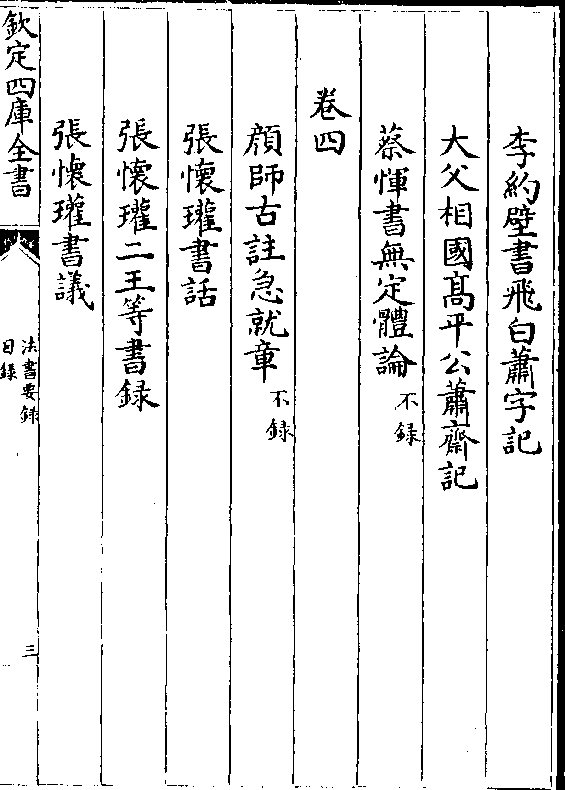 李約壁書飛白蕭字記
大父相國髙平公蕭齋記
蔡惲書無定體論 不録
卷四
顔師古註急就章 不録
張懷瓘書話
張懷瓘二王等書録
張懷瓘書議
欽定四庫全書
法書要録
目録
三